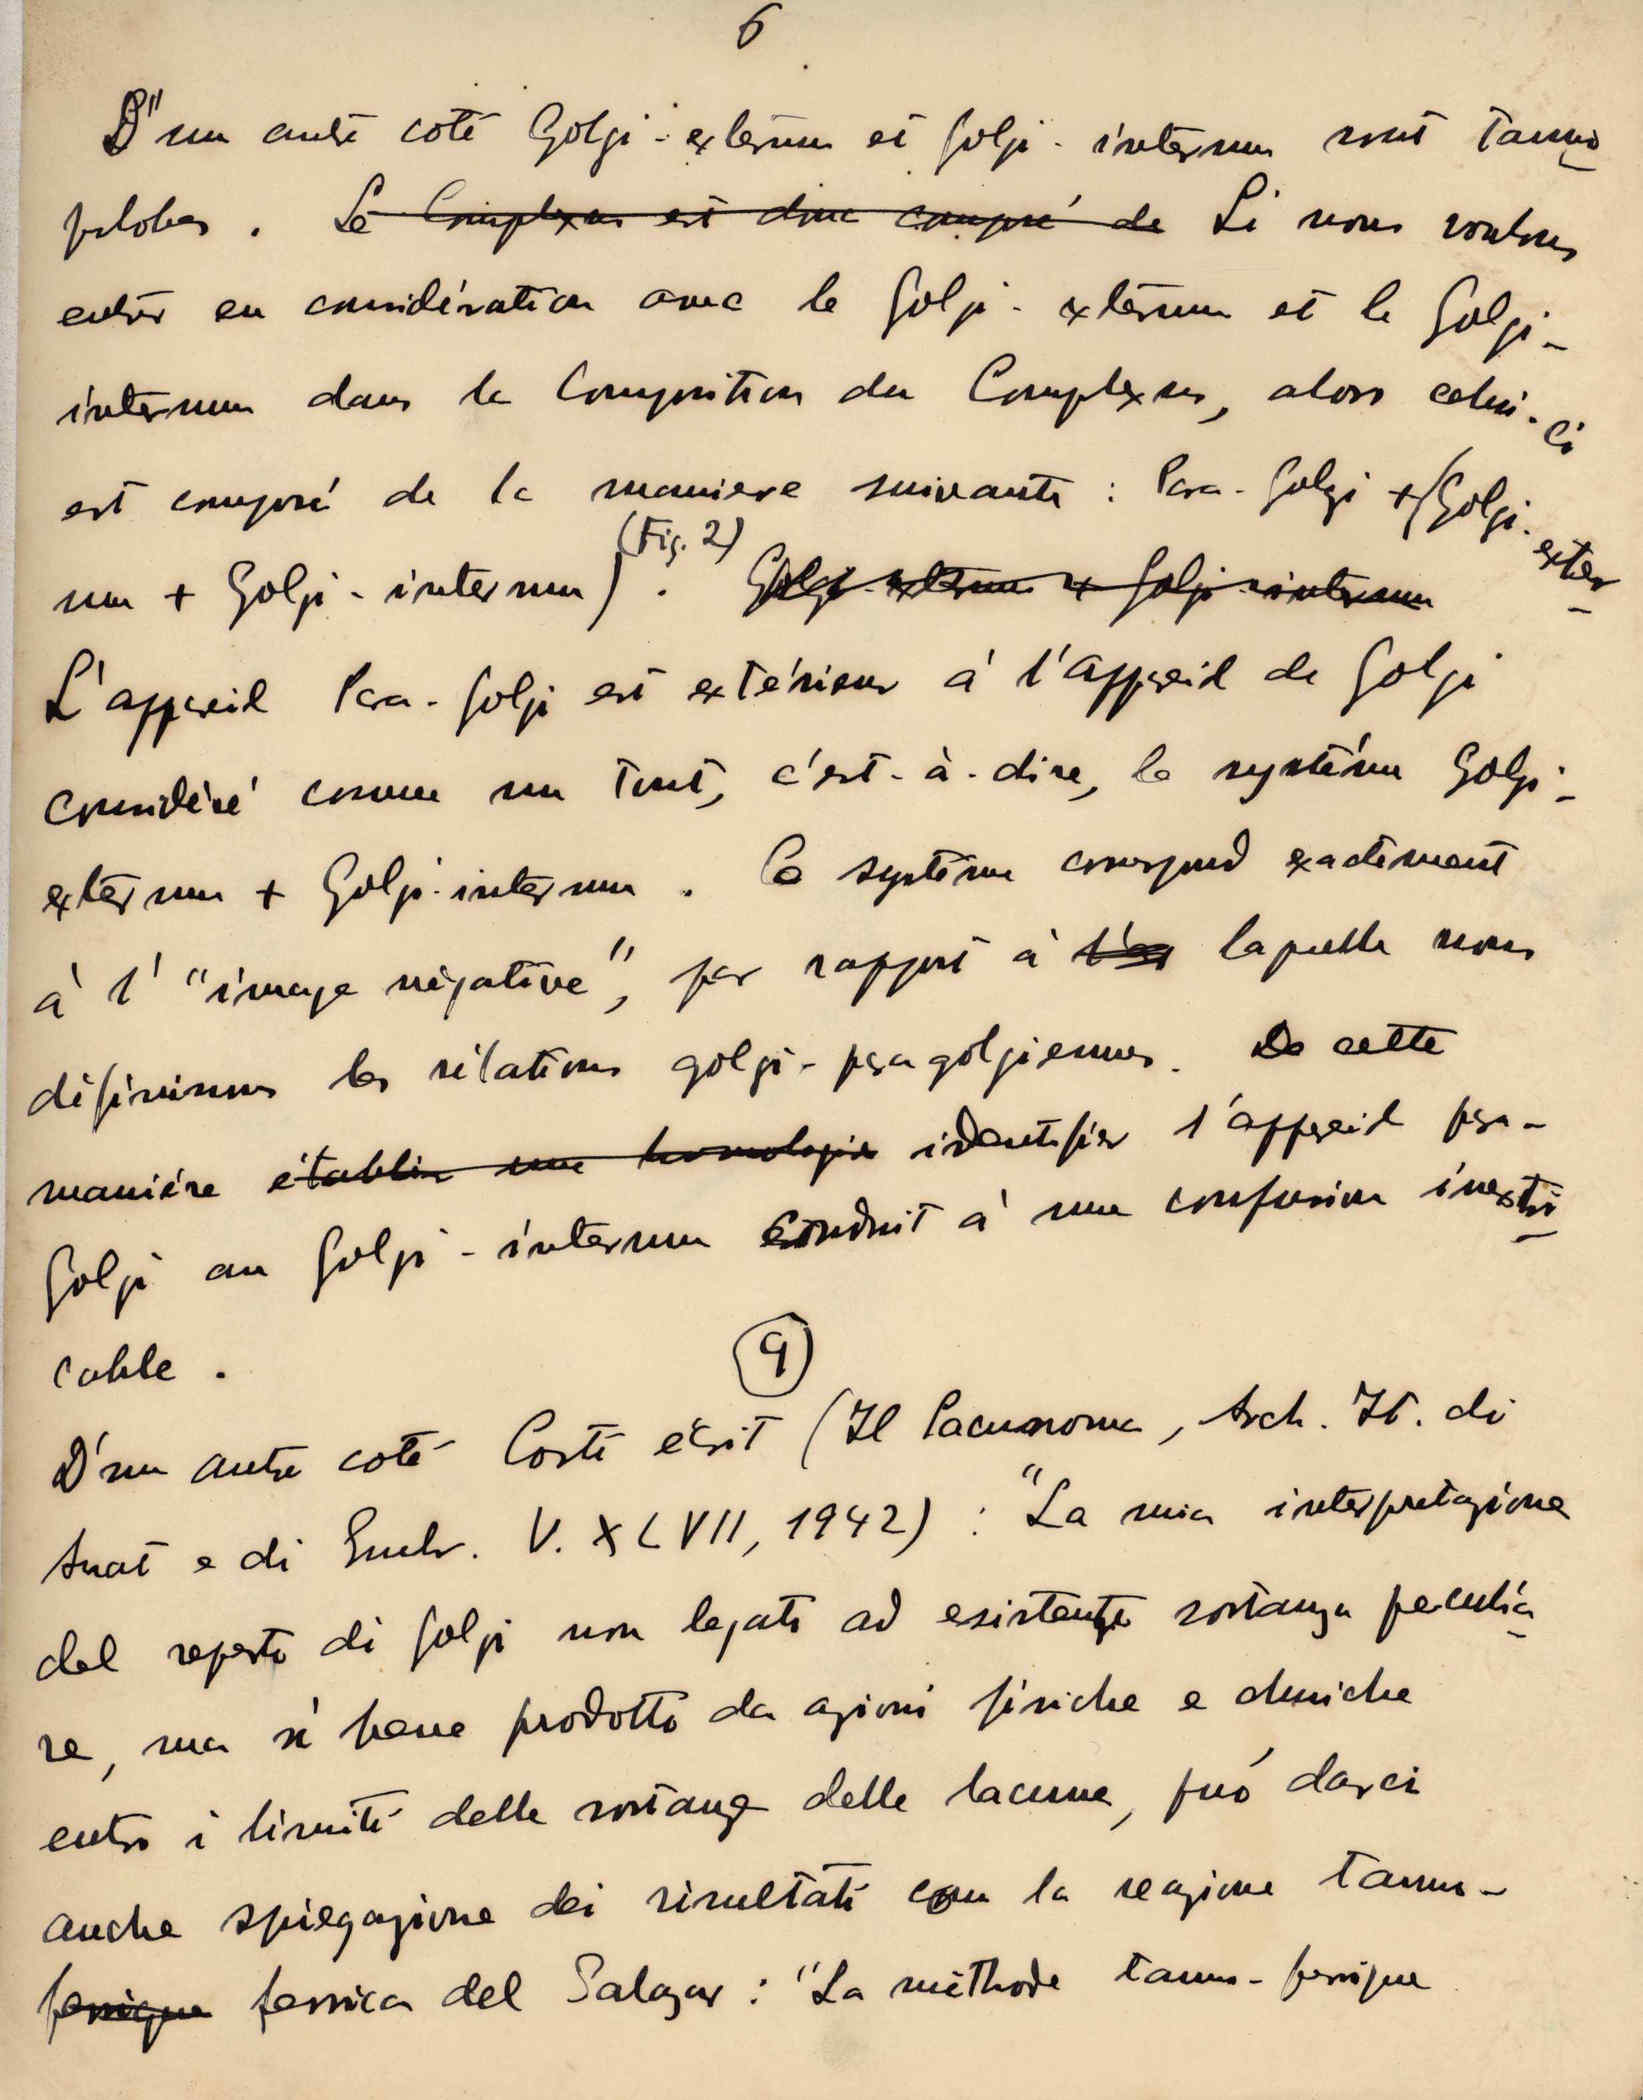 6
D'un autre coté Golgi-externum et Golgi-internum sont tanno
philobes. Le Complexus est donc composé de Si nous voulons
entrer en considération avec le Golgi-externum et le Golgi-
internum dans la Composition du Complexus, alors celui-ci
est composé de la maniere suivante : Para-Golgi + (Golgi-exter
num + Golgi-internum) (Fig. 2). Golgi-externum + Golgi-internum
L'appareil Para-Golgi est extérieur á l'appareil de Golgi
considéré comme un tout, c'est-à-dire, le systéme Golgi-
externum + Golgi-internum. Ce systéme correspond exactement
à l' "image négative", par rapport à laquelle nous
définissons les rélations golgi-paragolgiennes. De cette
maniére établir une homologie identifier l'appareil para-
Golgi au Golgi-internum conduit á une confusion inextri
cable.
9
D'un autre coté Corti écrit (Il Lacunoma, Arch. It. di
Anat e di Embr. V. XLVII, 1942) : "La mia interpretazione
del reperto di Golgi non legato ad esistente sostanza peculia
re, ma si bene prodotto da azioni fisiche e chimiche
entro i limiti delle sostanze delle lacune, puó darci
anche spiegazione dei risultati con la reazione tanno-
ferrique ferrica del Salazar : "La méthode tanno-ferrique